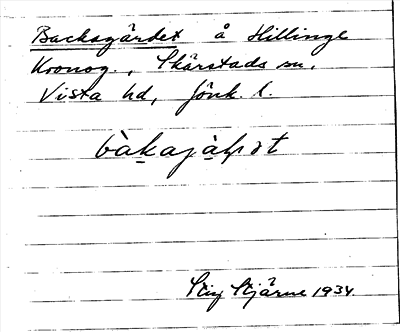 Backsgärdet å Hillinge
Kronog., Skärstads sn.
Vista hd, Jönk. l.
Stig Stjärne 1934.